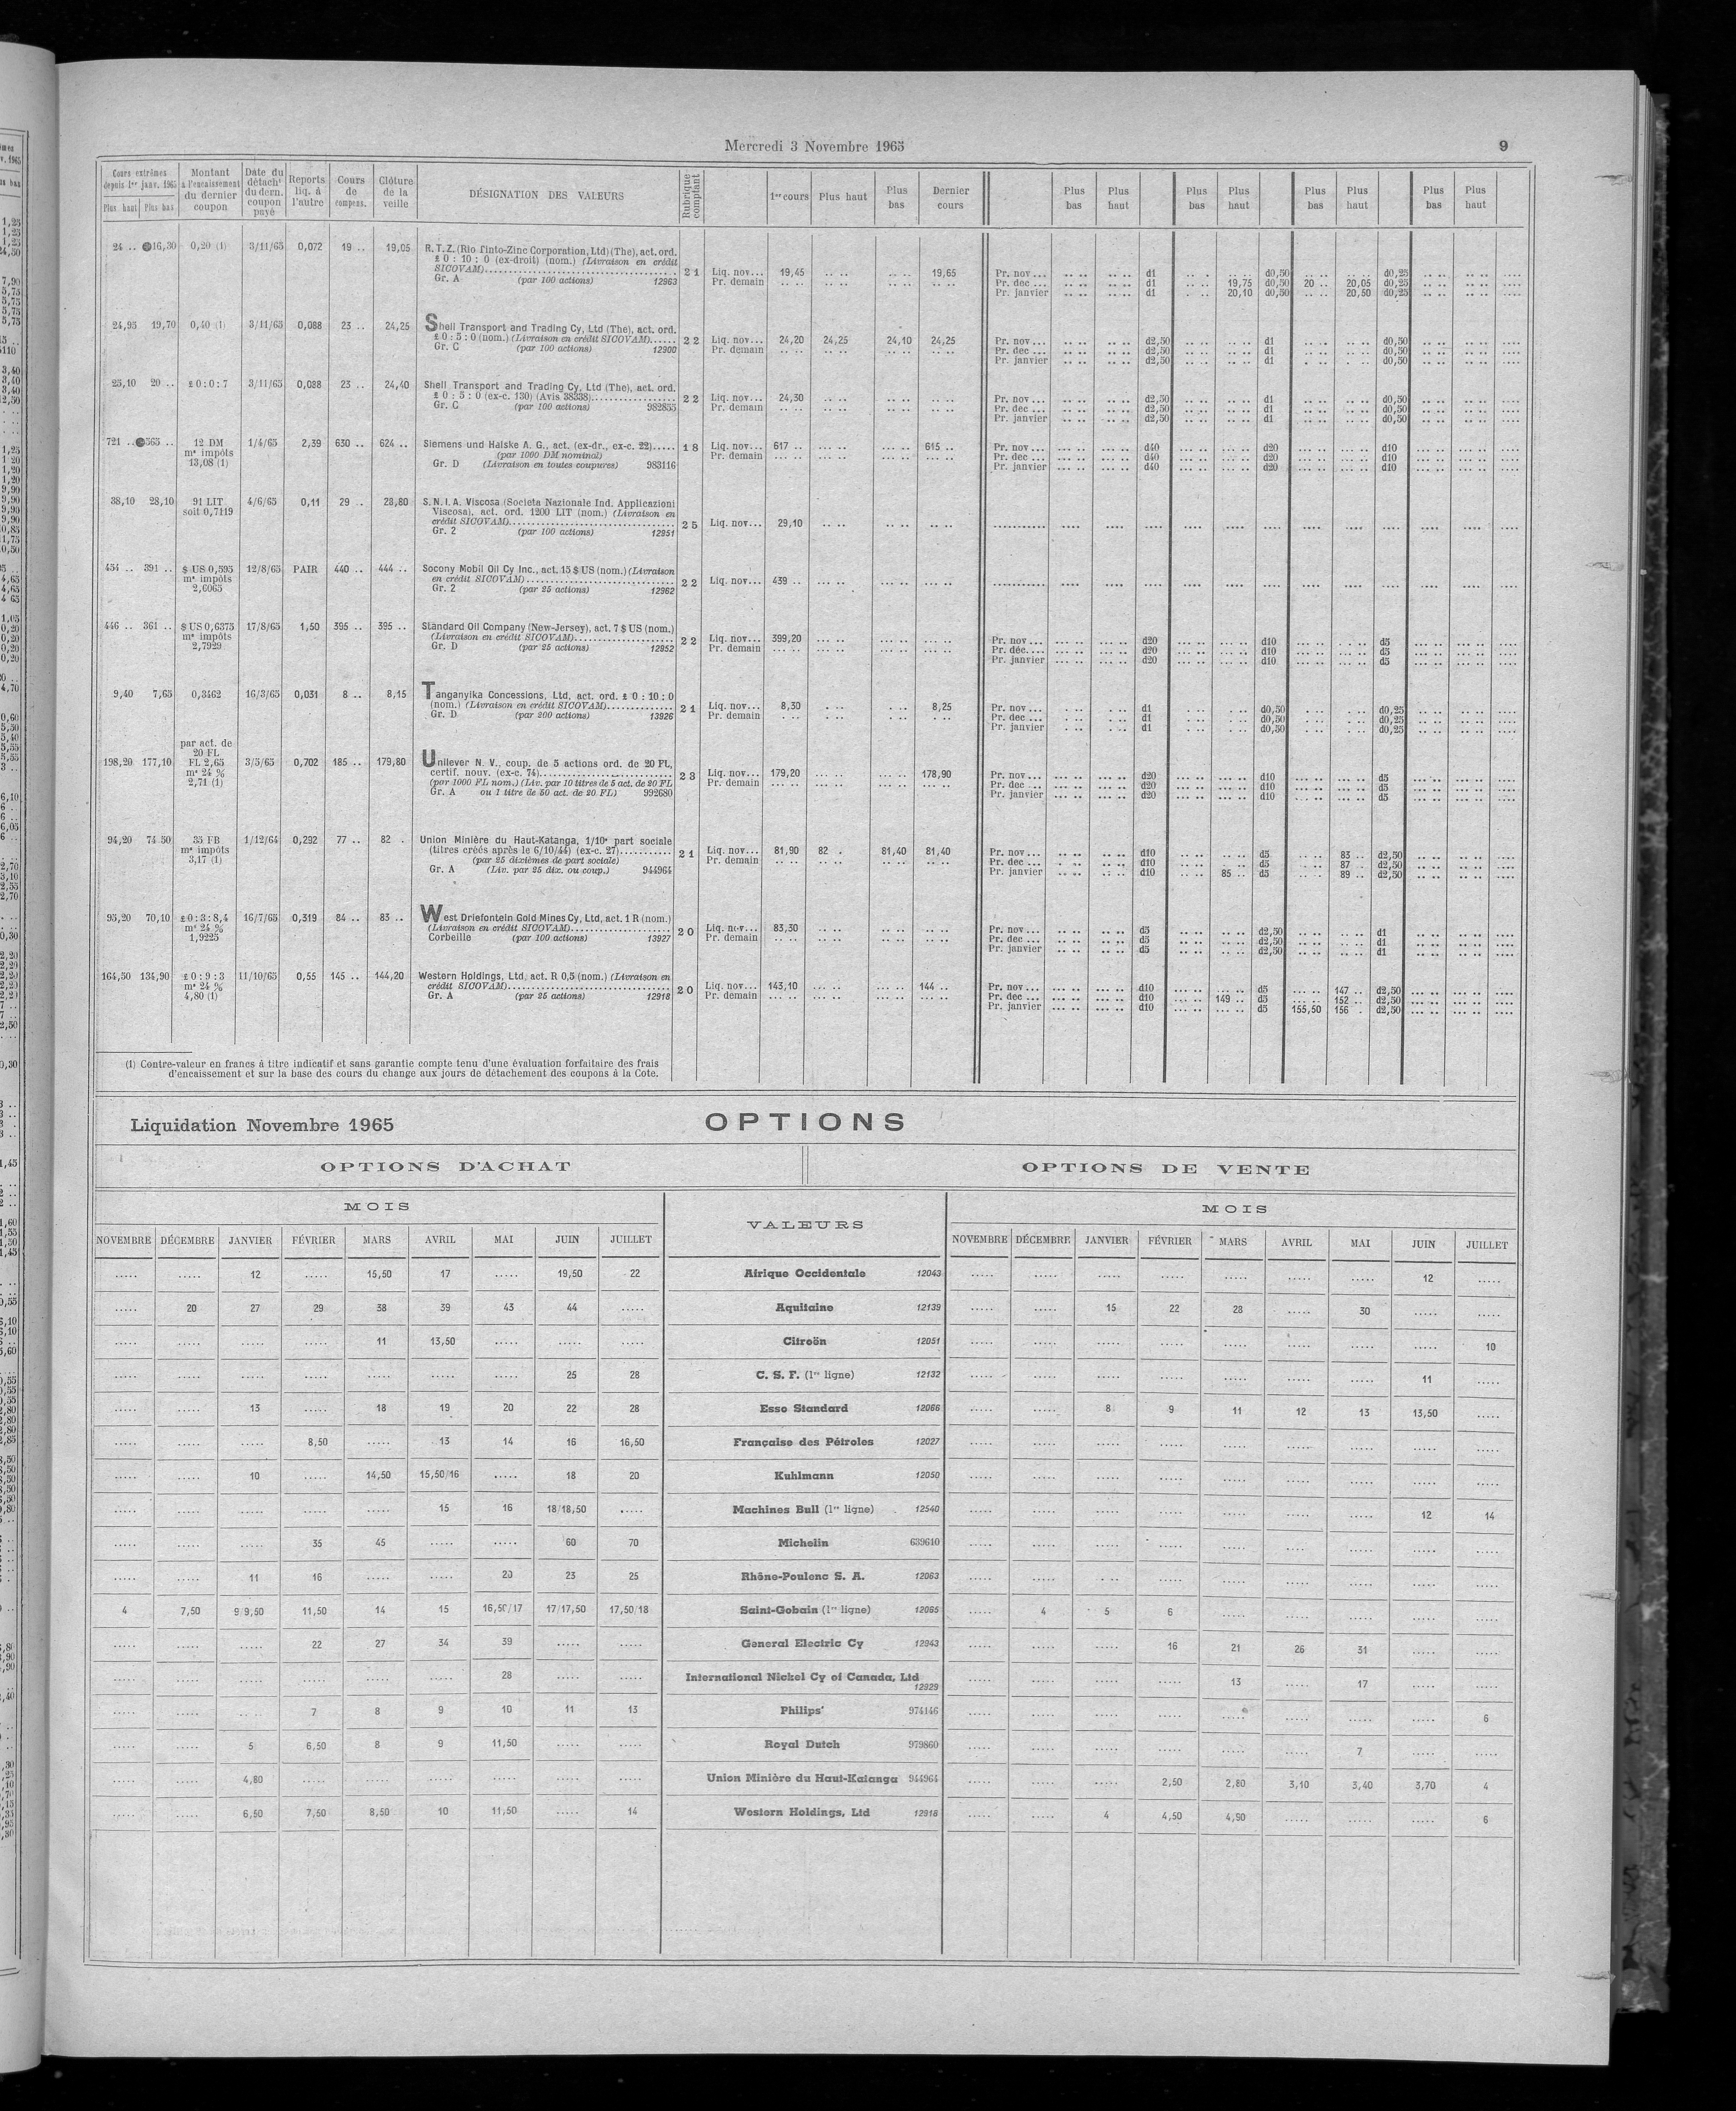 Mercredi 3 Novembre 1965 9
Cours extrêmes depuis 1er janv. 1965 Plus haut Plus bas | Montant à l'encaissement du dernier coupon | Date du détacht du dern. coupon payé | Reports liq. à l'autre | Cours de compens. | Clôture de la veille | DÉSIGNATION DES VALEURS | Rubrique comptant | 1er cours | Plus haut | Plus bas | Dernier cours | Plus bas | Plus haut | Plus bas | Plus haut | Plus bas | Plus haut | Plus bas | Plus haut
24 .. 16,30 0,20 (1) 3/11/65 0,072 19 .. 19,05 R. T. Z. (Rio Tinto-Zinc Corporation, Ltd) (The), act. ord.
£ 0 : 10 : 0 (ex-droit) (nom.) (Livraison en crédit
SICOVAM) 21 Liq. nov... 19,45 .. .. .. .. 19,65 Pr. nov ... d1 d0,50 d0,25
Gr. A (par 100 actions) 12963 Pr. demain Pr. dec ... d1 19,75 d0,50 20 .. 20,05 d0,25
Pr. janvier d1 20,10 d0,50 20,50 d0,25
24,95 19,70 0,40 (1) 3/11/65 0,088 23 .. 24,25 Shell Transport and Trading Cy, Ltd (The), act. ord.
£ 0 : 5 : 0 (nom.) (Livraison en crédit SICOVAM) 22 Liq. nov... 24,20 24,25 24,10 24,25 Pr. nov ... d2,50 d1 d0,50
Gr. C (par 100 actions) 12900 Pr. demain Pr. dec ... d2,50 d1 d0,50
Pr. janvier d2,50 d1 d0,50
25,10 20 .. £ 0 : 0 : 7 3/11/65 0,088 23 .. 24,40 Shell Transport and Trading Cy, Ltd (The), act. ord.
£ 0 : 5 : 0 (ex-c. 130) (Avis 38338) 22 Liq. nov... 24,30 Pr. nov ... d2,50 d1 d0,50
Gr. C (par 100 actions) 982855 Pr. demain Pr. dec ... d2,50 d1 d0,50
Pr. janvier d2,50 d1 d0,50
721 .. 565 .. 12 DM 1/4/65 2,39 630 .. 624 .. Siemens und Halske A. G., act. (ex-dr., ex-c. 22) 18 Liq. nov... 617 .. 615 .. Pr. nov ... d40 d20 d10
ms impôts (par 1000 DM nominal) Pr. demain Pr. dec ... d40 d20 d10
13,08 (1) Gr. D (Livraison en toutes coupures) 983116 Pr. janvier d40 d20 d10
38,10 28,10 91 LIT 4/6/65 0,11 29 .. 28,80 S. N. I. A. Viscosa (Societa Nazionale Ind. Applicazioni
soit 0,7119 Viscosa), act. ord. 1200 LIT (nom.) (Livraison en
crédit SICOVAM) 25 Liq. nov... 29,10
Gr. 2 (par 100 actions) 12951
454 .. 391 .. $ US 0,595 12/8/65 PAIR 440 .. 444 .. Socony Mobil Oil Cy Inc., act. 15 $ US (nom.) (Livraison
ms impôts en crédit SICOVAM) 22 Liq. nov... 439 ..
2,6065 Gr. 2 (par 25 actions) 12962
446 .. 361 .. $ US 0,6375 17/8/65 1,50 395 .. 395 .. Standard Oil Company (New-Jersey), act. 7 $ US (nom.)
ms impôts (Livraison en crédit SICOVAM) 22 Liq. nov... 399,20 Pr. nov ... d20 d10 d5
2,7929 Gr. D (par 25 actions) 12952 Pr. demain Pr. déc.... d20 d10 d5
Pr. janvier d20 d10 d5
9,40 7,65 0,3462 16/3/65 0,031 8 .. 8,15 Tanganyika Concessions, Ltd, act. ord. £ 0 : 10 : 0
(nom.) (Livraison en crédit SICOVAM) 21 Liq. nov... 8,30 8,25 Pr. nov ... d1 d0,50 d0,25
Gr. D (par 200 actions) 13926 Pr. demain Pr. dec ... d1 d0,50 d0,25
Pr. janvier d1 d0,50 d0,25
par act. de
20 FL
198,20 177,10 FL 2,65 3/5/65 0,702 185 .. 179,80 Unilever N. V., coup. de 5 actions ord. de 20 FL,
ms 24 % certif. nouv. (ex-c. 74) 23 Liq. nov... 179,20 178,90 Pr. nov ... d20 d10 d5
2,71 (1) (par 1000 FL nom.) (Liv. par 10 titres de 5 act. de 20 FL Pr. demain Pr. dec ... d20 d10 d5
Gr. A ou 1 titre de 50 act. de 20 FL) 992680 Pr. janvier d20 d10 d5
94,20 74 50 35 FB 1/12/64 0,292 77 .. 82 . Union Minière du Haut-Katanga, 1/10e part sociale
ms impôts (titres créés après le 6/10/44) (ex-c. 27) 21 Liq. nov... 81,90 82 . 81,40 81,40 Pr. nov ... d10 d5 83 .. d2,50
3,17 (1) (par 25 dixièmes de part sociale) Pr. demain Pr. dec ... d10 d5 87 .. d2,50
Gr. A (Liv. par 25 dix. ou coup.) 944964 Pr. janvier d10 85 .. d5 89 .. d2,50
95,20 70,10 £ 0 : 3 : 8,4 16/7/65 0,319 84 .. 83 .. West Driefontein Gold Mines Cy, Ltd, act. 1 R (nom.)
ms 24 % (Livraison en crédit SICOVAM) 20 Liq. nov... 83,30 Pr. nov ... d5 d2,50 d1
1,9225 Corbeille (par 100 actions) 13927 Pr. demain Pr. dec ... d5 d2,50 d1
Pr. janvier d5 d2,50 d1
164,50 134,90 £ 0 : 9 : 3 11/10/65 0,55 145 .. 144,20 Western Holdings, Ltd, act. R 0,5 (nom.) (Livraison en
ms 24 % crédit SICOVAM) 20 Liq. nov... 143,10 144 .. Pr. nov ... d10 d5 147 .. d2,50
4,80 (1) Gr. A (par 25 actions) 12918 Pr. demain Pr. dec ... d10 149 .. d5 152 .. d2,50
Pr. janvier d10 d5 155,50 156 . d2,50
(1) Contre-valeur en francs à titre indicatif et sans garantie compte tenu d'une évaluation forfaitaire des frais
d'encaissement et sur la base des cours du change aux jours de détachement des coupons à la Cote.
Liquidation Novembre 1965 OPTIONS
OPTIONS D'ACHAT OPTIONS DE VENTE
MOIS VALEURS MOIS
NOVEMBRE DÉCEMBRE JANVIER FÉVRIER MARS AVRIL MAI JUIN JUILLET NOVEMBRE DÉCEMBRE JANVIER FÉVRIER MARS AVRIL MAI JUIN JUILLET
..... ..... 12 ..... 15,50 17 ..... 19,50 22 Afrique Occidentale 12043 ..... ..... ..... ..... ..... ..... ..... 12 .....
..... 20 27 29 38 39 43 44 ..... Aquitaine 12139 ..... ..... 15 22 28 ..... 30 ..... .....
..... ..... ..... ..... 11 13,50 ..... ..... ..... Citroën 12051 ..... ..... ..... ..... ..... ..... ..... ..... 10
..... ..... ..... ..... ..... ..... ..... 25 28 C. S. F. (1re ligne) 12132 ..... ..... ..... ..... ..... ..... ..... 11 .....
..... ..... 13 ..... 18 19 20 22 28 Esso Standard 12066 ..... ..... 8 9 11 12 13 13,50 .....
..... ..... ..... 8,50 ..... 13 14 16 16,50 Française des Pétroles 12027 ..... ..... ..... ..... ..... ..... ..... ..... .....
..... ..... 10 ..... 14,50 15,50/16 ..... 18 20 Kuhlmann 12050 ..... ..... ..... ..... ..... ..... ..... ..... .....
..... ..... ..... ..... ..... 15 16 18/18,50 ..... Machines Bull (1re ligne) 12540 ..... ..... ..... ..... ..... ..... ..... 12 14
..... ..... ..... 35 45 ..... ..... 60 70 Michelin 639610 ..... ..... ..... ..... ..... ..... ..... ..... .....
..... ..... 11 16 ..... ..... 20 23 25 Rhône-Poulenc S. A. 12063 ..... ..... ..... ..... ..... ..... ..... ..... .....
4 7,50 9/9,50 11,50 14 15 16,50/17 17/17,50 17,50/18 Saint-Gobain (1re ligne) 12065 ..... 4 5 6 ..... ..... ..... ..... .....
..... ..... ..... 22 27 34 39 ..... ..... General Electric Cy 12943 ..... ..... ..... 16 21 26 31 ..... .....
..... ..... ..... ..... ..... ..... 28 ..... ..... International Nickel Cy of Canada, Ltd 12929 ..... ..... ..... ..... 13 ..... 17 ..... .....
..... ..... ..... 7 8 9 10 11 13 Philips' 974146 ..... ..... ..... ..... ..... ..... ..... ..... 6
..... ..... 5 6,50 8 9 11,50 ..... ..... Royal Dutch 979860 ..... ..... ..... ..... ..... ..... 7 ..... .....
..... ..... 4,80 ..... ..... ..... ..... ..... ..... Union Minière du Haut-Katanga 944964 ..... ..... ..... 2,50 2,80 3,10 3,40 3,70 4
..... ..... 6,50 7,50 8,50 10 11,50 ..... 14 Western Holdings, Ltd 12918 ..... ..... 4 4,50 4,50 ..... ..... ..... 6